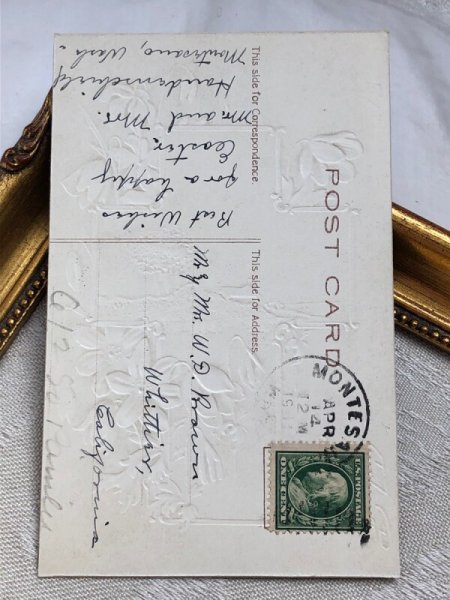 POST CARD
This side for Correspondence
This side for Address.
Best Wishes
for a happy
Easter.
Mr. and Mrs.
Montesano, Wash.
Mr & Mrs. W. D. Brown
Whittier,
California
MONTES
APR
14
12 M
U.S. POSTAGE
ONE CENT